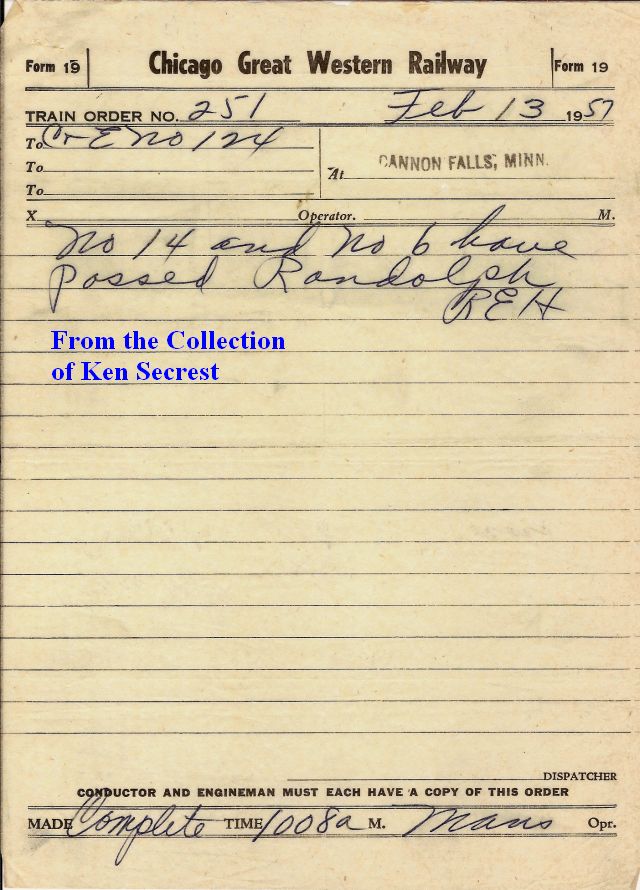 Form 19 Chicago Great Western Railway Form 19
TRAIN ORDER NO. 251 Feb 13 1957
To C+E No 124
To
To
At CANNON FALLS, MINN.
X Operator. M.
No 14 and No 6 have
passed Randolph
REH
From the Collection
of Ken Secrest
DISPATCHER
CONDUCTOR AND ENGINEMAN MUST EACH HAVE A COPY OF THIS ORDER
MADE Complete TIME 1008a M. Maus Opr.